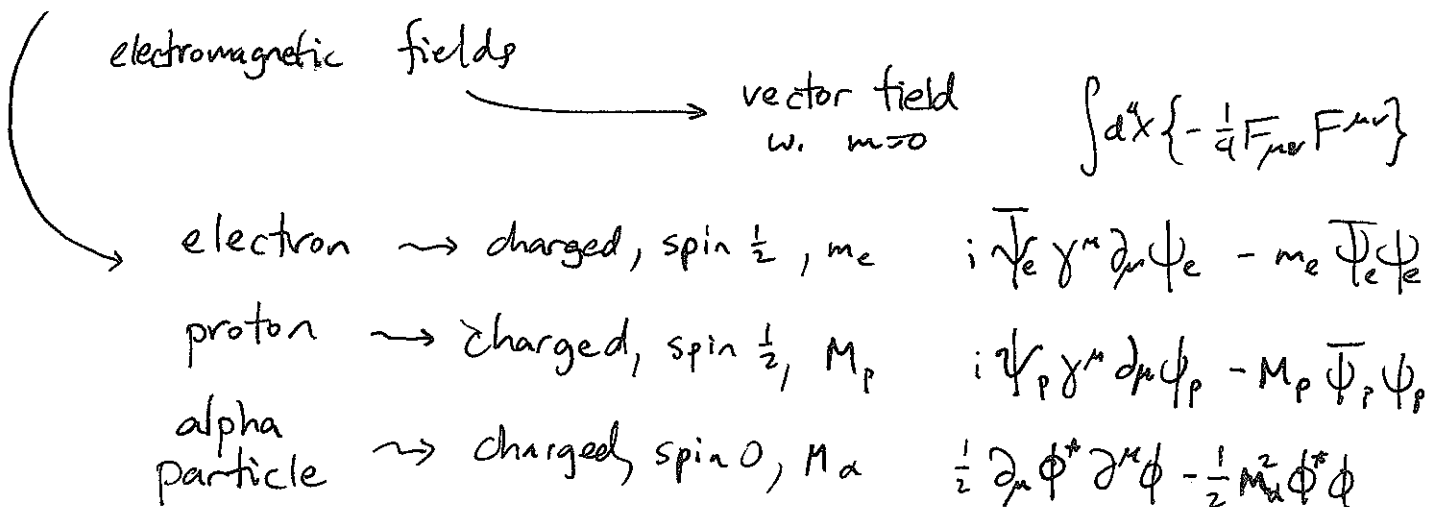 electromagnetic fields
vector field w. m=0 ∫d⁴x{-¼F_μν F^μν}
electron ⇝ charged, spin ½, m_e i ψ̄_e γ^μ ∂_μ ψ_e - m_e ψ̄_e ψ_e
proton ⇝ charged, spin ½, M_p i ψ̄_p γ^μ ∂_μ ψ_p - M_p ψ̄_p ψ_p
alpha
particle ⇝ charged, spin 0, M_α ½ ∂_μ ϕ* ∂^μ ϕ - ½ M_α² ϕ* ϕ